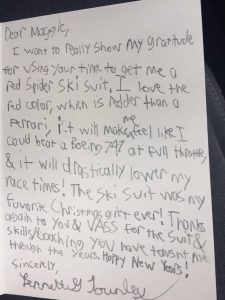 Dear Maggie,
I want to really show my gratitude
for using your time to get me a
red Spider ski suit. I love the
red color, which is redder than a
Ferrari, it will make me feel like I
could beat a Boeing 747 at full throttle,
& it will drastically lower my
race times! The ski suit was my
favorite Christmas gift ever! Thanks
again to you & VASS for the suit &
skills/coaching you have taught me
through the years. Happy New Years!
Sincerely,